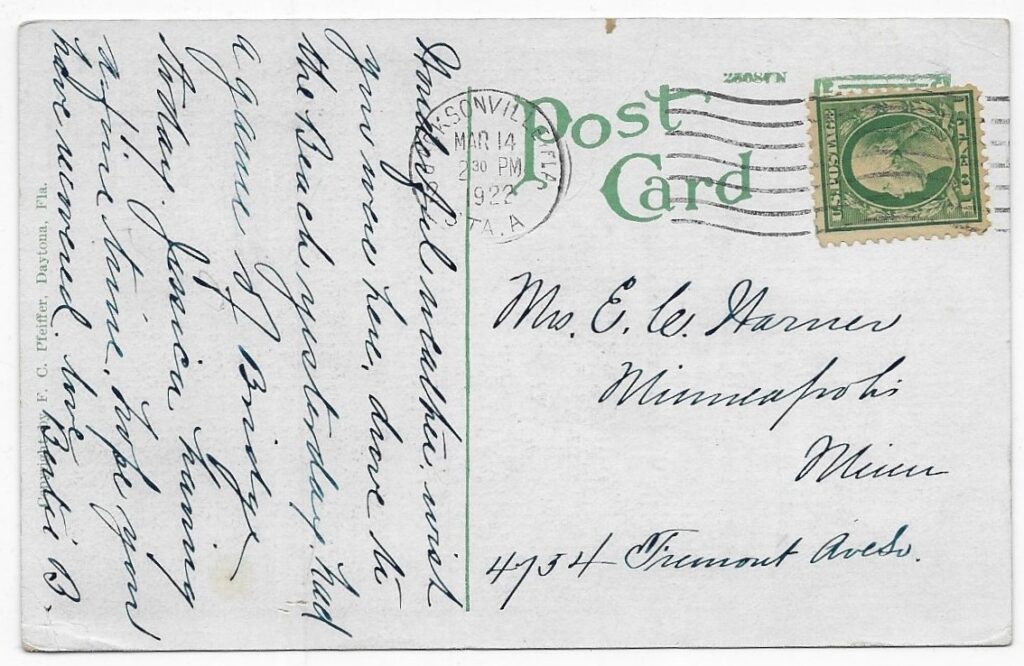 Post
Card
N.48997
KSONVILLE, FLA.
MAR 14
2 30 PM
1922
STA. A
U.S. POSTAGE
1 CENT 1
Wonderful weather. wish
you were here. drove to
the Beach yesterday. had
a game of Bridge
today. Jessica having
a fine time. hope you
have recovered. love
Beatie B.
Mrs. E. C. Harner
Minneapolis
Minn
4734 Fremont Ave So.
Copyright by F. C. Pfeiffer, Daytona, Fla.